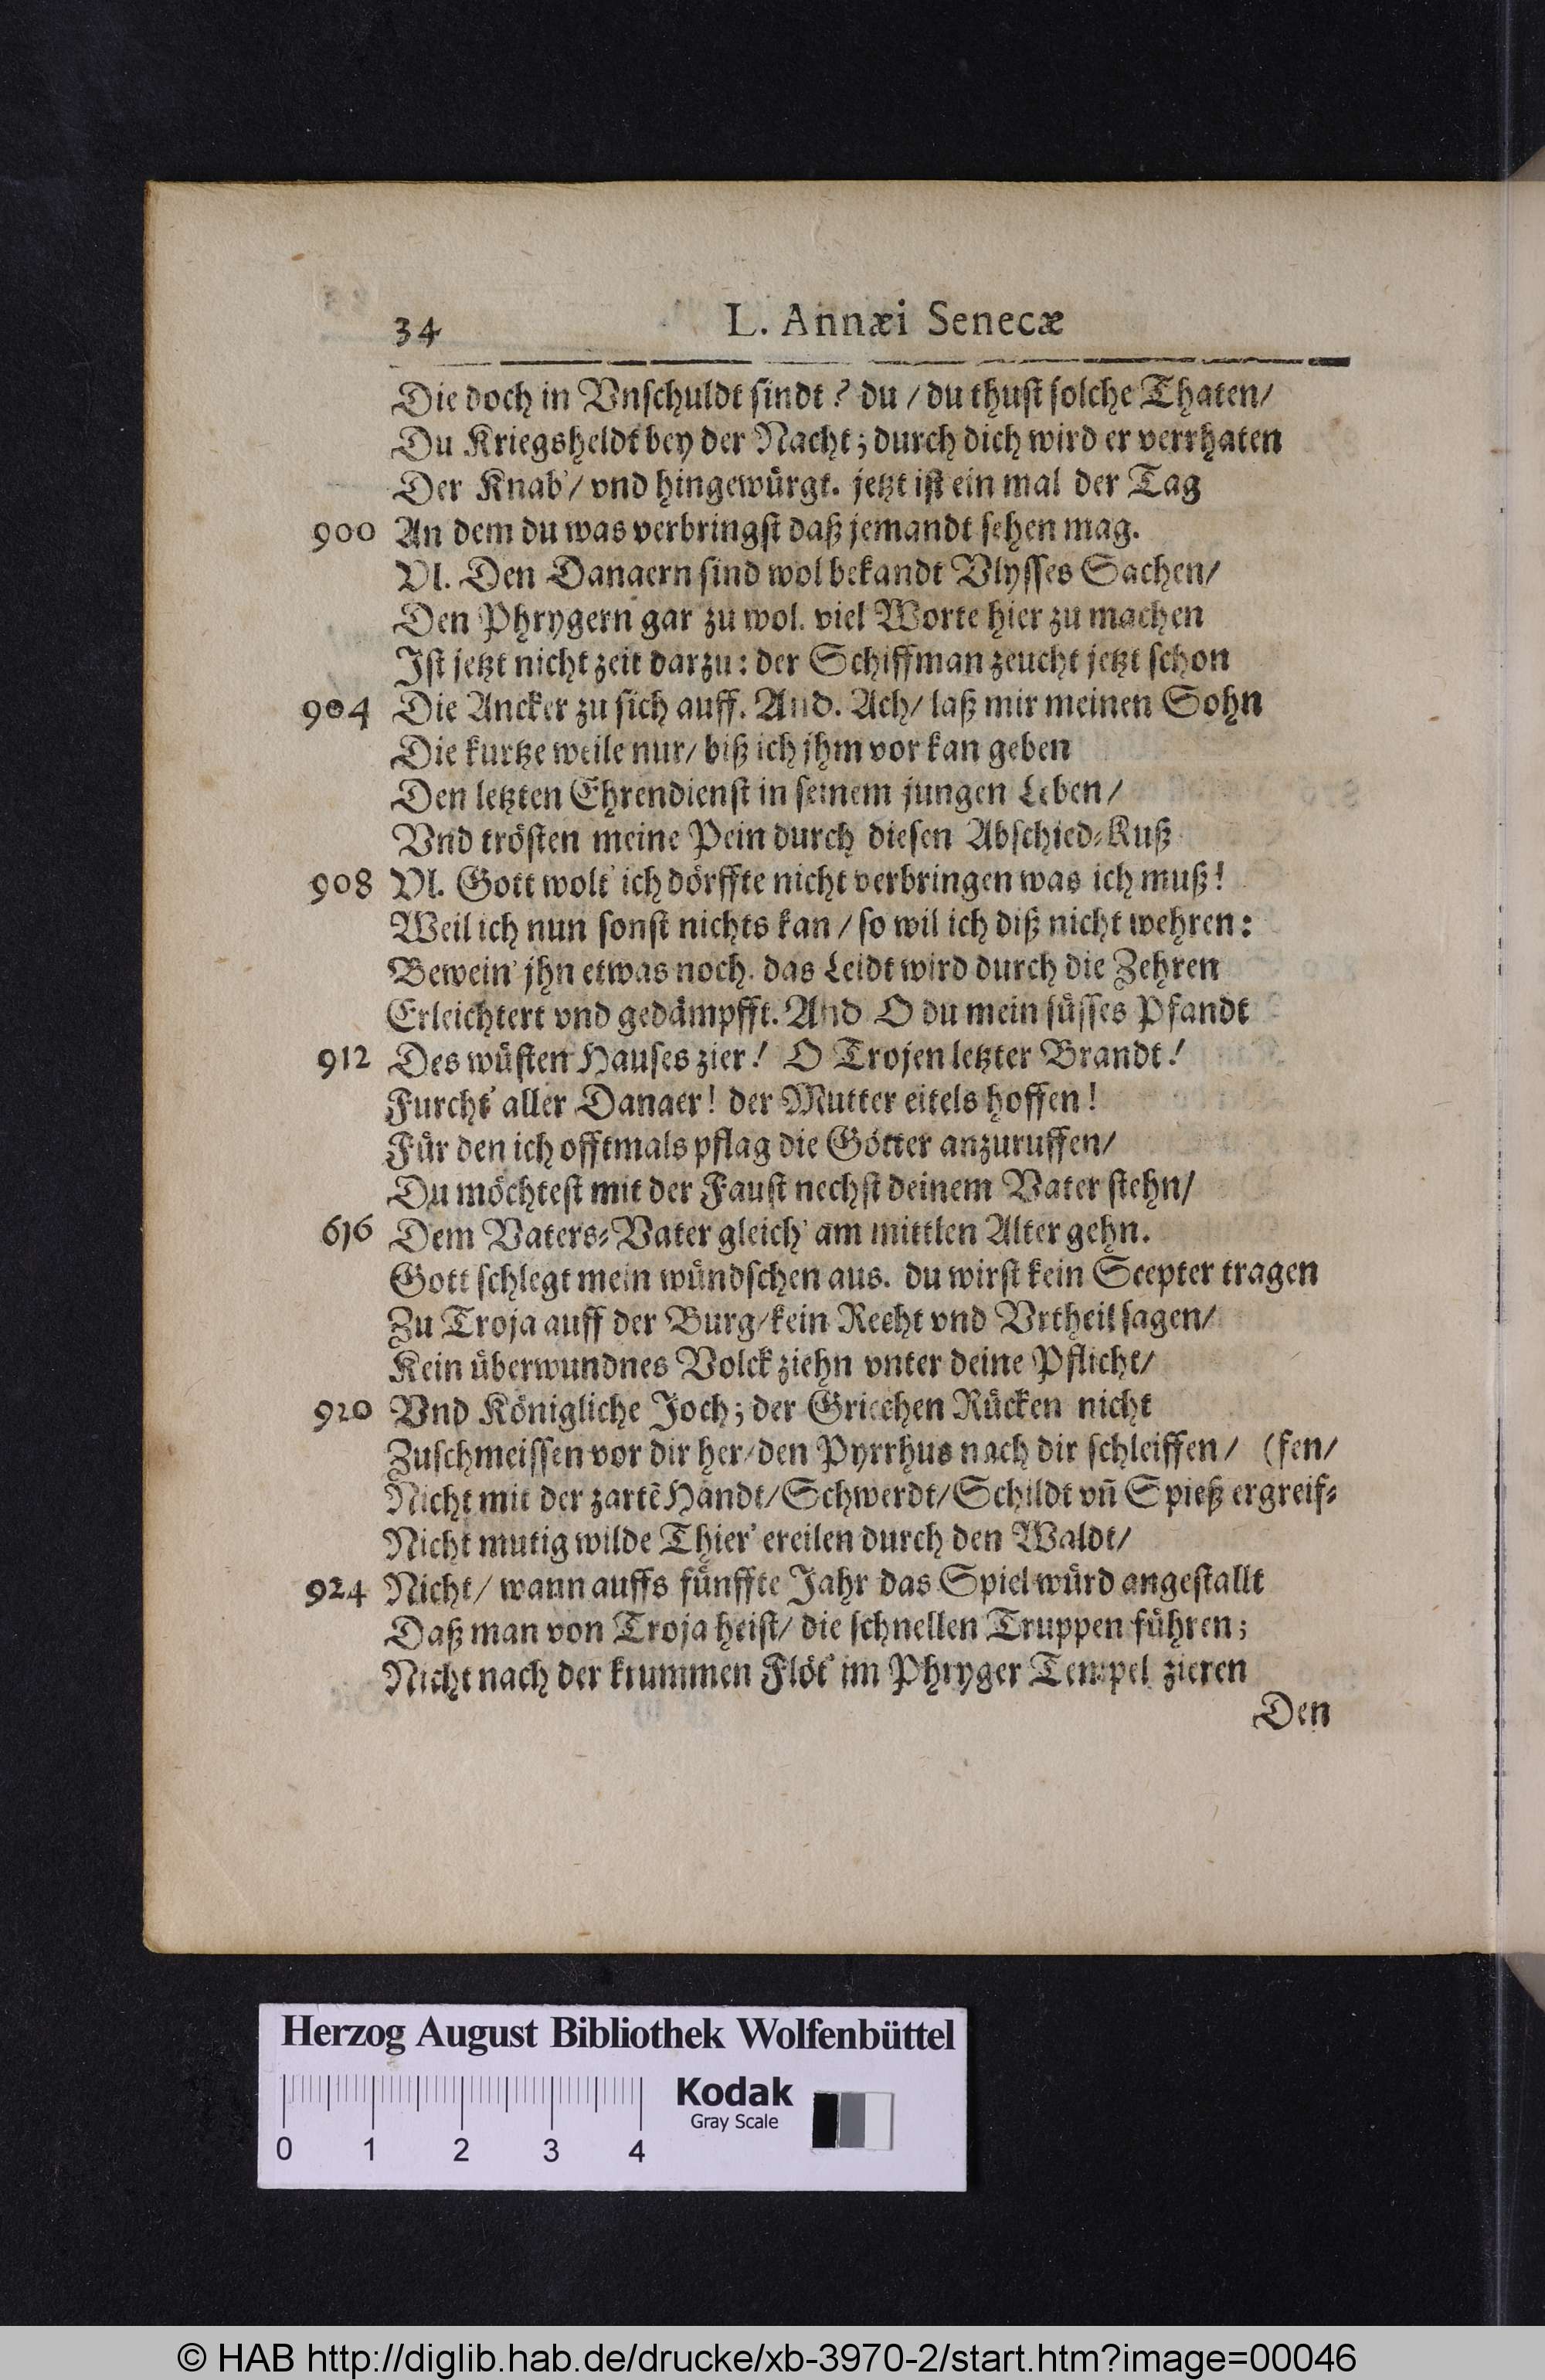 34 L. Annæi Senecæ
Die doch in Vnschuldt sindt? du / du thust solche Thaten/
Du Kriegsheldt bey der Nacht; durch dich wird er verrhaten
Der Knab'/ vnd hingewürgt. jetzt ist ein mal der Tag
900 An dem du was verbringst daß jemandt sehen mag.
Vl. Den Danaern sind wol bekandt Vlysses Sachen/
Den Phrygern gar zu wol. viel Worte hier zu machen
Ist jetzt nicht zeit darzu: der Schiffman zeucht jetzt schon
904 Die Ancker zu sich auff. And. Ach/ laß mir meinen Sohn
Die kurtze weile nur/ biß ich jhm vor kan geben
Den letzten Ehrendienst in seinem jungen Leben/
Vnd trösten meine Pein durch diesen Abschied-Kuß
908 Vl. Gott wolt' ich dörffte nicht verbringen was ich muß!
Weil ich nun sonst nichts kan / so wil ich diß nicht wehren:
Bewein' jhn etwas noch. das Leidt wird durch die Zehren
Erleichtert vnd gedämpfft. And O du mein süsses Pfandt
912 Des wüsten Hauses zier! O Trojen letzter Brandt!
Furcht' aller Danaer! der Mutter eitels hoffen!
Für den ich offtmals pflag die Götter anzuruffen/
Du möchtest mit der Faust nechst deinem Vater stehn/
616 Dem Vaters-Vater gleich' am mittlen Alter gehn.
Gott schlegt mein wündschen aus. du wirst kein Scepter tragen
Zu Troja auff der Burg/kein Recht vnd Vrtheil sagen/
Kein überwundnes Volck ziehn vnter deine Pflicht/
920 Vnd Königliche Joch; der Griechen Rücken nicht
Zuschmeissen vor dir her/den Pyrrhus nach dir schleiffen/ (fen/
Nicht mit der zartẽ Handt/Schwerdt/Schildt vñ Spieß ergreif-
Nicht mutig wilde Thier' ereilen durch den Waldt/
924 Nicht/ wann auffs fünffte Jahr das Spiel würd angestallt
Daß man von Troja heist/ die schnellen Truppen führen;
Nicht nach der krummen Flöt' im Phryger Tempel zieren
Den
Herzog August Bibliothek Wolfenbüttel
Kodak
Gray Scale
0 1 2 3 4
© HAB http://diglib.hab.de/drucke/xb-3970-2/start.htm?image=00046